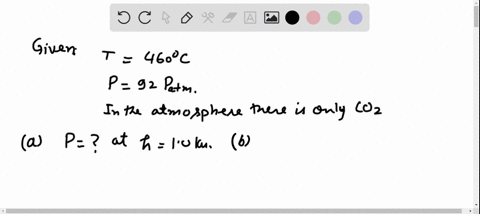 Given T = 460°C
P = 92 Patm.
In the atmosphere there is only CO2
(a) P = ? at h = 1.0 km. (b)